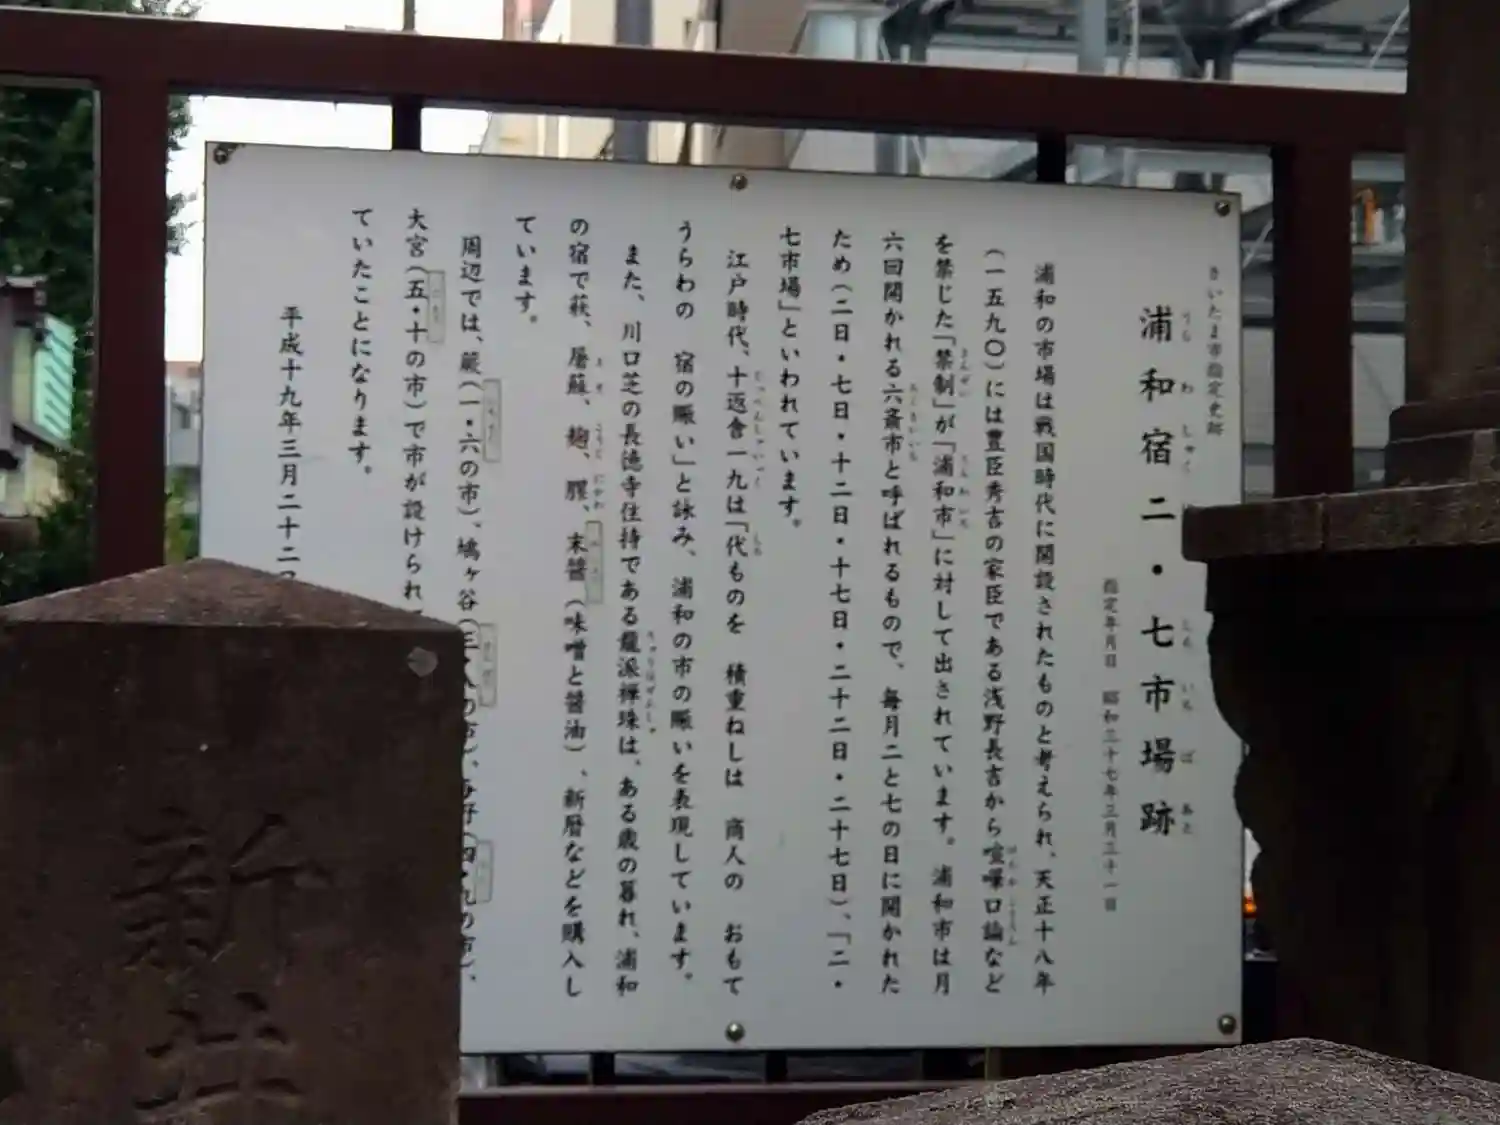 さいたま市指定史跡
浦和宿二・七市場跡
指定年月日 昭和三十七年三月三十一日
浦和の市場は戦国時代に開設されたものと考えられ、天正十八年
(一五九〇)には豊臣秀吉の家臣である浅野長吉から喧嘩口論など
を禁じた「禁制」が「浦和市」に対して出されています。浦和市は月
六回開かれる六斎市と呼ばれるもので、毎月二と七の日に開かれた
ため(二日・七日・十二日・十七日・二十二日・二十七日)、「二・
七市場」といわれています。
江戸時代、十返舎一九は「代ものを 積重ねしは 商人の おもて
うらわの 宿の賑い」と詠み、浦和の市の賑いを表現しています。
また、川口芝の長徳寺住持である龍派禅珠は、ある歳の暮れ、浦和
の宿で萩、屠蘇、麹、膠、末醬(味噌と醤油)、新暦などを購入し
ています。
周辺では、蕨(一・六の市)、鳩ヶ谷(三・八の市)、与野(四・九の市)、
大宮(五・十の市)で市が設けられ
ていたことになります。
平成十九年三月二十二
新